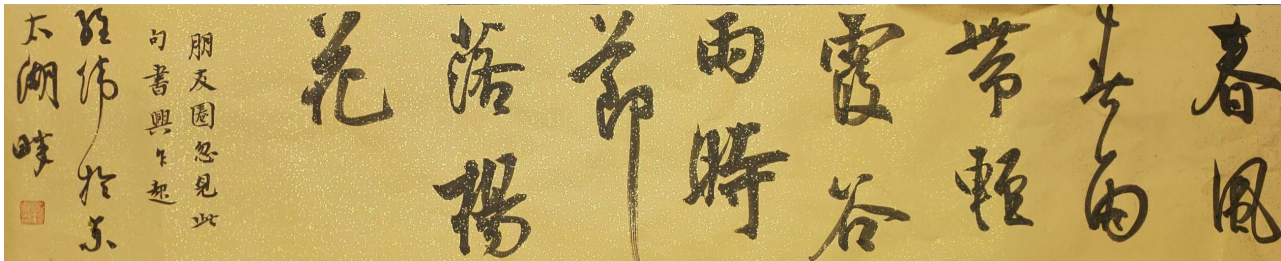 春風
春雨
帶輕
霞谷
雨時
節
落楊
花
朋友圈忽見此
句書興乍起
經緯於東
太湖畔